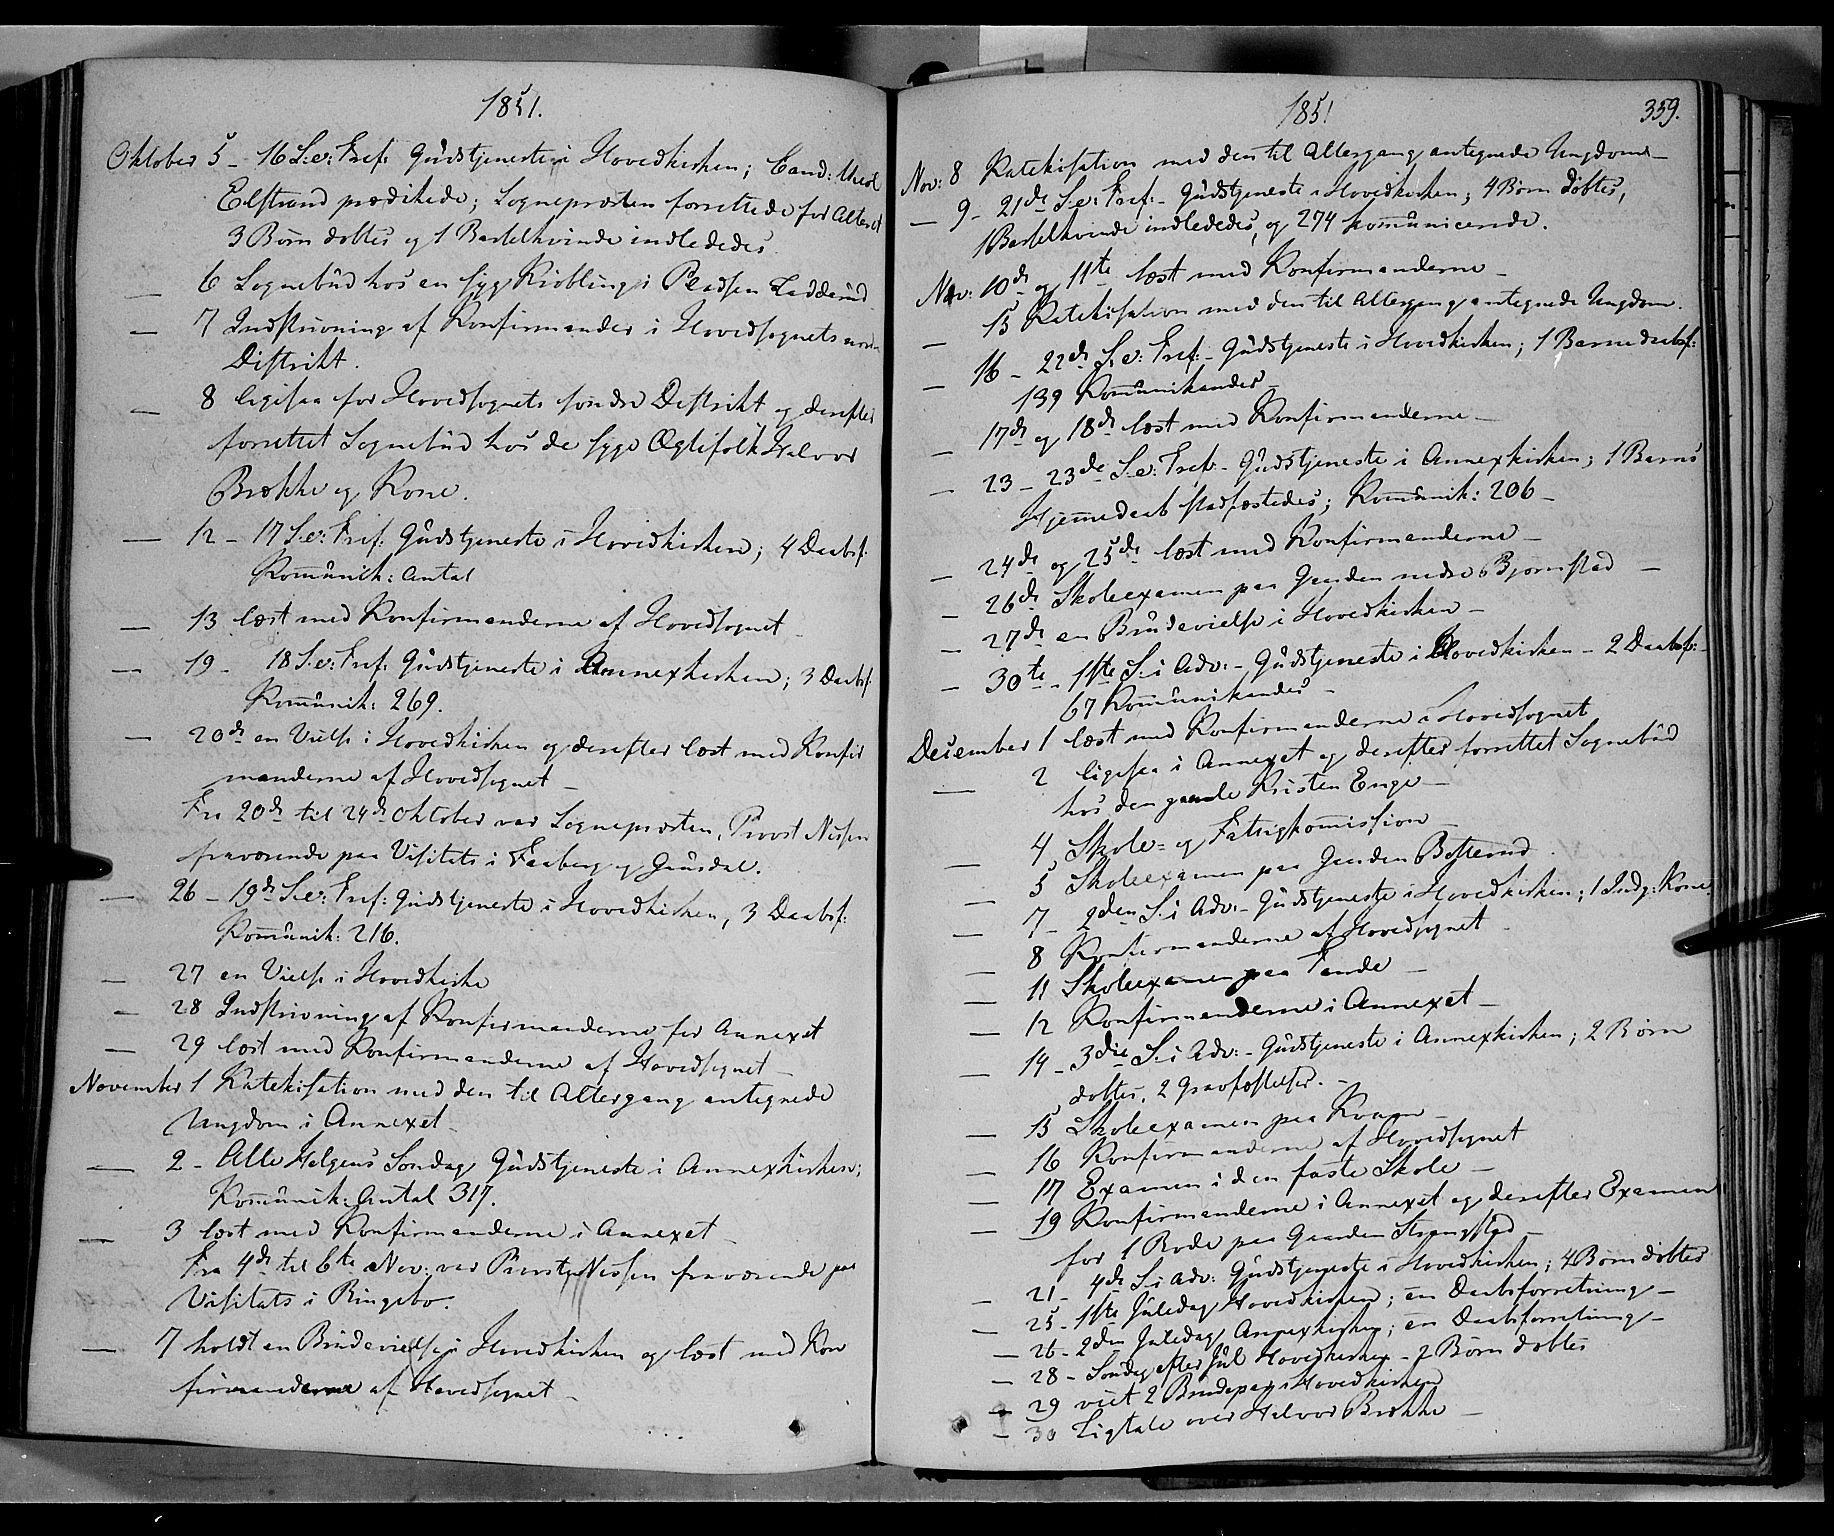 1851.
Oktober 5 - 16 S. e: Tref: Gudstjeneste i Hovedkirken; Cand: theol
Elstrand prædikede; Sognepræsten forrettede for Alteret
3 Børn døbtes og 1 Barselkvinde indlededes.
— 6 Sognebud hos en syg Kiobling i Pladsen Ladderud
— 7 Indskrivning af Konfirmander i Hovedsognets nordre
Distrikt.
— 8 ligesaa for Hovedsognets søndre Distrikt og derefter
forrettet Sognebud hos de syge Ægtefolk Halvor
Brække og Kone.
— 12 - 17 S. e: Tref: Gudstjeneste i Hovedkirken; 4 Daabsf:
Kommunik: Antal
— 13 læst med Konfirmanderne af Hovedsognet -
— 19 - 18 S. e: Tref: Gudstjeneste i Annexkirken; 3 Daabsf.
Kommunik: 269.
— 20de en Vielse i Hovedkirken og derefter læst med Konfir
manderne af Hovedsognet -
Fra 20de til 24de Oktober var Sognepræsten, Provst Nissen
fraværende paa Visitats i Faaberg og Gausdal.
— 26 - 19de S. e: Tref: Gudstjeneste i Hovedkirken, 3 Daabsf:
Kommunik: 216.
— 27 en Vielse i Hovedkirke
— 28 Indskrivning af Konfirmanderne for Annexet
— 29 læst med Konfirmanderne af Hovedsognet -
November 1 Katekisation med den til Altergang antegnede
Ungdom i Annexet -
— 2 - Alle Helgens Søndag Gudstjeneste i Annexkirken;
Kommunik: Antal 317.
— 3 læst med Konfirmanderne i Annexet -
Fra 4de til 6te Nov: var Provst Nissen fraværende paa
Visitats i Ringebo.
— 7 holdt en Brudevielse i Hovedkirken og læst med Kon
firmanderne af Hovedsognet -
1851
359.
Nov: 8 Katekisation med den til Altergang antegnede Ungdom -
— 9 - 21de S. e: Tref: - Gudstjeneste i Hovedkirken; 4 Børn døbtes,
1 Barselkvinde indlededes, og 274 kommunicerede.
Nov: 10de og 11te læst med Konfirmanderne -
— 15 Katekisation med den til Altergang antegnede Ungdom.
— 16 - 22de S. e: Tref: - Gudstjeneste i Hovedkirken; 1 Barnedaabsf:
139 Kommunikander -
— 17de og 18de læst med Konfirmanderne -
— 23 - 23de S. e: Tref: - Gudstjeneste i Annexkirken; 1 Barns
Hjemmedaab stadfæstedes; Kommunik: 206 -
— 24de og 25de læst med Konfirmanderne -
— 26de Skoleexamen paa Gaarden nedre Bjørnstad -
— 27de en Brudevielse i Hovedkirken -
— 30te - 1ste S. i Adv: - Gudstjeneste i Hovedkirken - 2 Daabsf:
67 Kommunikander -
December 1 læst med Konfirmanderne i Hovedsognet
— 2 ligesaa i Annexet og derefter forrettet Sognebud
hos den gamle Kristen Enge -
— 4, Skole- og Fattigkommission -
— 5 Skoleexamen paa Gaarden Bosterud.
— 7 - 2den S. i Adv: - Gudstjeneste i Hovedkirken; 1 Indg: Kone
— 8 Konfirmanderne af Hovedsognet -
— 11 Skoleexamen paa Tande -
— 12 Konfirmanderne i Annexet -
— 14 - 3die S. i Adv: - Gudstjeneste i Annexkirken; 2 Børn
døbtes, 2 Gravfæstelser. -
— 15 Skoleexamen paa Kvarn -
— 16 Konfirmanderne af Hovedsognet
— 17 Examen i den faste Skole -
— 19 Konfirmanderne i Annexet og derefter Examen
for 1 Rode paa Gaarden Strangstad -
— 21 - 4de S. i Adv: Gudstjeneste i Hovedkirken; 4 Børn døbtes
— 25 - 1ste Juledag Hovedkirken; en Daabsforretning -
— 26 - 2den Juledag Annexkirken; en Daabsforretning -
— 28 - Søndag efter Jul Hovedkirken - 2 Børn døbtes
— 29 viet 2 Brudepar i Hovedkirken
— 30 Ligtale over Halvor Brække -